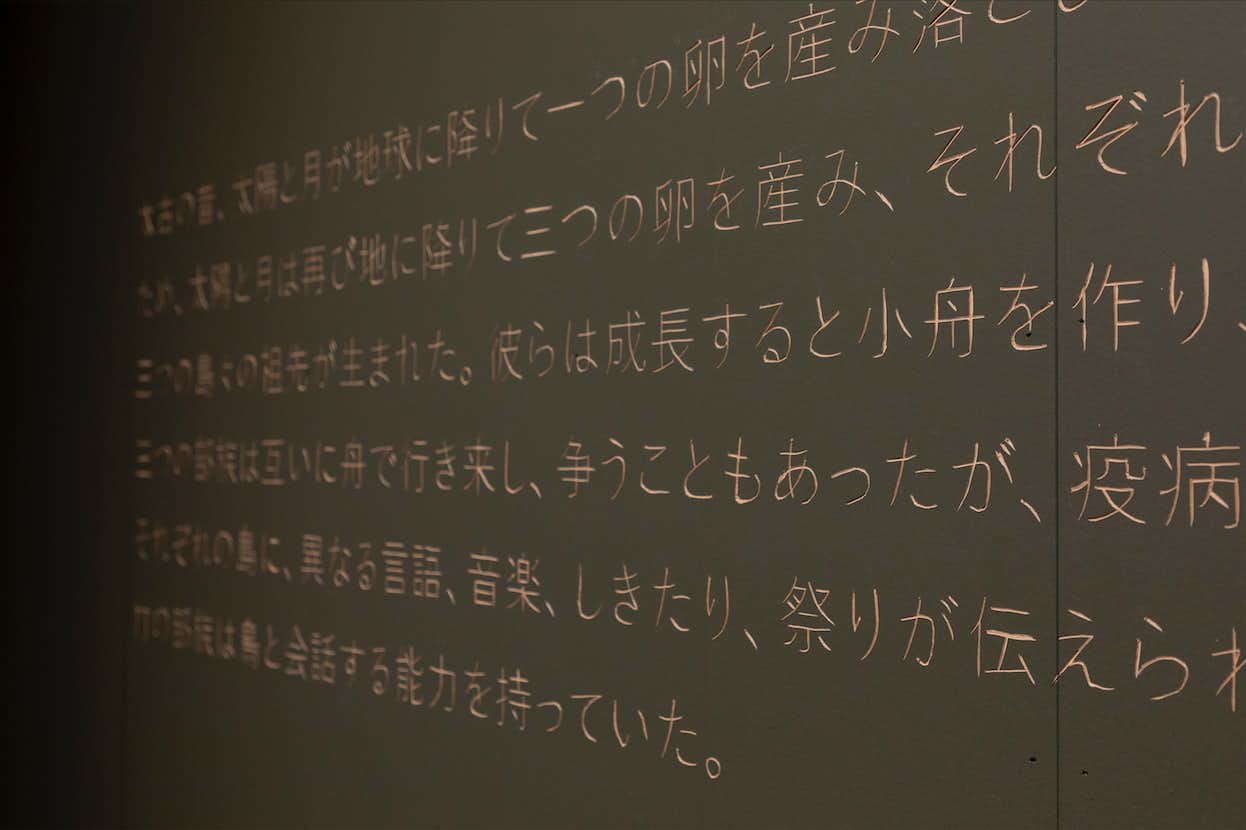 太古の昔、太陽と月が地球に降りて一つの卵を産み落とし
ため、太陽と月は再び地に降りて三つの卵を産み、それぞれ
三つの島々の祖先が生まれた。彼らは成長すると小舟を作り、
三つの部族は互いに舟で行き来し、争うこともあったが、疫病
それぞれの島に、異なる言語、音楽、しきたり、祭りが伝えられ
の部族は鳥と会話する能力を持っていた。